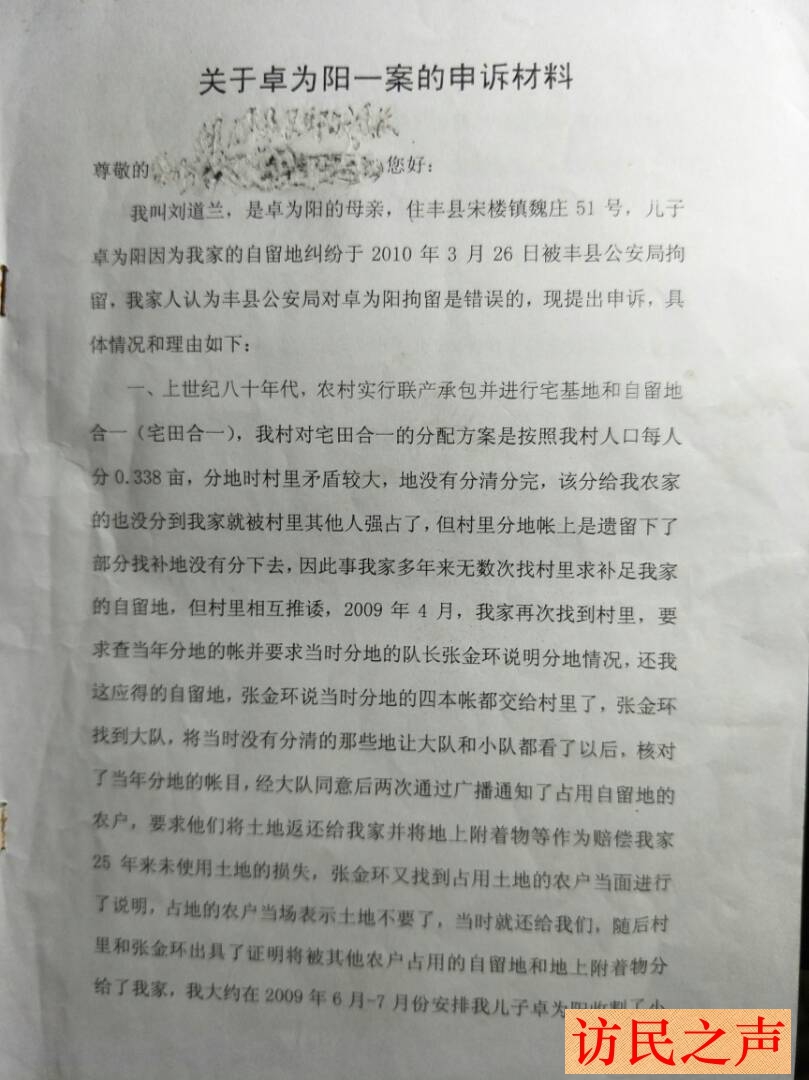 关于卓为阳一案的申诉材料
尊敬的
您好：
我叫刘道兰，是卓为阳的母亲，住丰县宋楼镇魏庄 51 号，儿子
卓为阳因为我家的自留地纠纷于 2010 年 3 月 26 日被丰县公安局拘
留，我家人认为丰县公安局对卓为阳拘留是错误的，现提出申诉，具
体情况和理由如下：
一、上世纪八十年代，农村实行联产承包并进行宅基地和自留地
合一（宅田合一），我村对宅田合一的分配方案是按照我村人口每人
分 0.338 亩，分地时村里矛盾较大，地没有分清分完，该分给我农家
的也没分到我家就被村里其他人强占了，但村里分地帐上是遗留下了
部分找补地没有分下去，因此事我家多年来无数次找村里求补足我家
的自留地，但村里相互推诿，2009 年 4 月，我家再次找到村里，要
求查当年分地的帐并要求当时分地的队长张金环说明分地情况，还我
这应得的自留地，张金环说当时分地的四本帐都交给村里了，张金环
找到大队，将当时没有分清的那些地让大队和小队都看了以后，核对
了当年分地的帐目，经大队同意后两次通过广播通知了占用自留地的
农户，要求他们将土地返还给我家并将地上附着物等作为赔偿我家
25 年来未使用土地的损失，张金环又找到占用土地的农户当面进行
了说明，占地的农户当场表示土地不要了，当时就还给我们，随后村
里和张金环出具了证明将被其他农户占用的自留地和地上附着物分
给了我家，我大约在 2009 年 6 月-7 月份安排我儿子卓为阳收割了小
访民之声